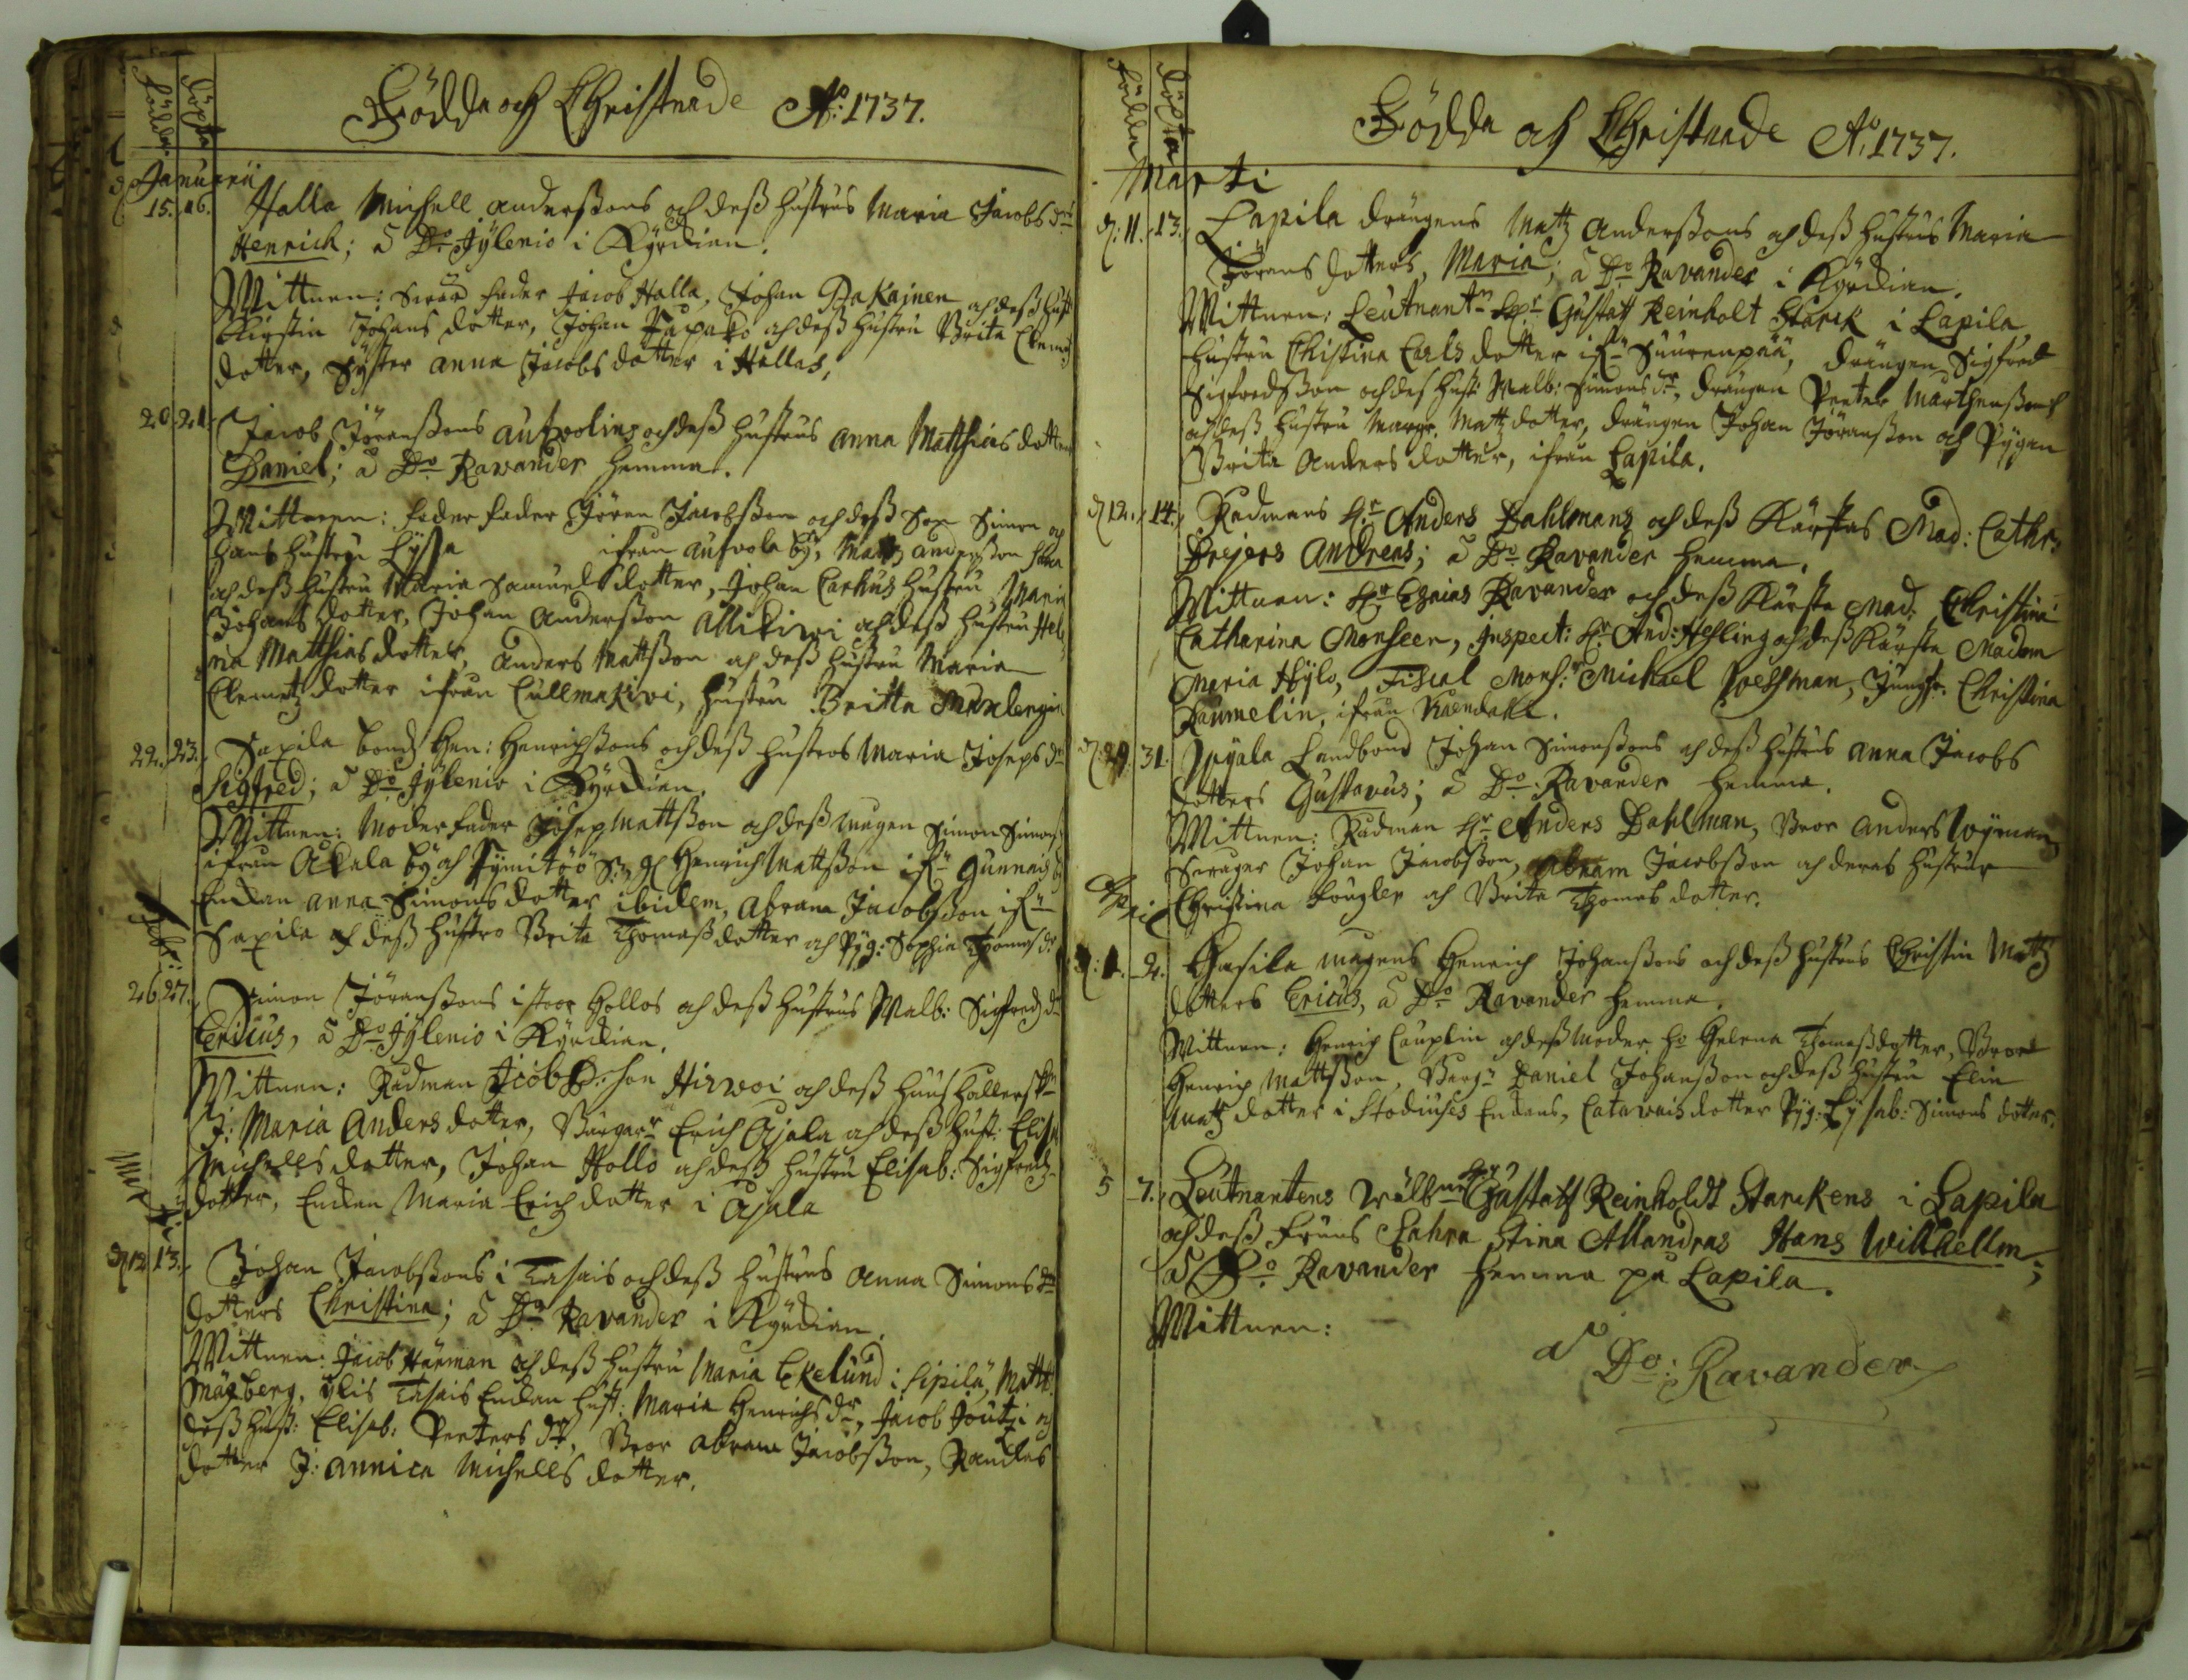 födde döpte
Födde och Christnade Aō: 1737.
Januarii
15. 16. Halla Michell Anderßons och deß hustrus Maria Jacobs drs
Henrich; a Dō Jÿlenio i Kÿrckian.
Wittnen: Swär fader Jacob Halla, Johan Pakainen och deß hust
Kirstin Johans dotter, Johan och deß hustru Brita Clemetz
dotter, Syster Anna Jacobs dotter i Hallas,
20. 21. Jacob Jöranßons Aufwolins och deß hustrus Anna Matthias dotter
Daniel; a Dō Ravander hemma.
Wittnen: fader fader Jöran Jacobßon och deß Son Simon och
hans hustru Lÿsa ifrån Aufwola bÿ, Matz Anderßon
och deß hustru Maria Samuels dotter, Johan Carhus hustru Maria
Johans dotter, Johan Anderßon Allikiwi och deß hustru Hele
na Matthias dotter, Anders Mattßon och deß hustru Maria
Clemetz dotter ifrån Cullmakivi, hustru Britta
22. 23. Saxila bond Hen: Henrichßons och deß hustros Maria Joseps dr
Sigfred; a Dō Jÿlenio i Kÿrckian.
Wittnen: Moder fader Josep Mattßon och deß mågen Simon Simonß
ifrån Åkala bÿ och Pÿmitöö Sn, Henrich Mattßon ifrn Gunnais
Enkan Anna Simons dotter ibidem, Abram Jacobßon ifrn
Saxila och deß hustro Brita Thomaß dotter och Pyg: Sophia Thomas dr
Febr:
26 27. Simon Jöranßons i stoor Hollos och deß hustrus Walb: Sigfredz dr
Ericus, a Dō Jÿlenio i Kÿrckian.
Wittnen: Rådman Jacob Hirwoi och deß huus hållersk
J: Maria Anders dotter, Borgarn Erich Ajala och deß hust: Elisa
Michells dotter, Johan Hollo och deß hustru Elisab: Sigfredz
dotter, Enkan Maria Erichz dotter i Ajala
Marti
d 12 13. Johan Jacobßons i Tasais och deß hustrus Anna Simons
dotters Christina; a Dō Ravander i Kÿrckian.
Wittnen: Jacob Härman och deß hustru Maria Ekelund i Sipilä, Matt:
Märberg, ÿlis Tasais Enkan hust: Maria Henrichs dr, Jacob Joutzi och
deß hust: Elisab: Peeters dr, Bror Abram Jacobßon, Randes
dotter J: Annica Michells dotter.
födde döpte
Födde och Christnade Aō: 1737.
Marti
d: 11. 13. Lapila drängens Matz Anderßons och deß hustrus Maria
Jörans dotters, Maria; a Dō Ravander i Kÿrckian.
Wittnen: Leutnantn Hr Gustaff Reinholt Starck i Lapila
hustru Christina Carls dotter ifrn Suurenpää, drängen Sigfred
Sigfredßon och deß hust: Walb: Simons dr, drängen Peeter Mårthenßon
och deß hustru Margr: Matz dotter, drängen Johan Jöranßon och Pÿgan
Brita Anders dotter, ifrån Lapila.
d 12. 14. Radmans Hr Anders Dahlmans och deß Kärstas Mad: Cathr:
Dreijers Andreas; a Dō Ravander hemma.
Wittnen: Hr Esaias Ravander och deß Kärsta Mad: Christina
Catharina Monseen, Inspect: Hr And: Hesling och deß Kärsta Madam
Maria Hÿlo, Fiscal Mons:r Michael Poessman, Jungfr. Christina
Raumelin, ifrån Raendahl.
d: 29. 31. Ajala Landbond Johan Simonßons och deß hustrus Anna Jacobs
dotters Gustavus; a Dō: Ravander hemma.
Wittnen: Radman Hr Anders Dahlman, Bror Anders Wÿman
Swåger Johan Jacobßon, Abram Jacobßon och deras hustrur
Christina Kougler och Brita Thomas dotter.
April
d: 1. 2. Hasila mågens Henrich Johanßons och deß hustrus Christin Matz
dotters Ericus, a Dō Ravander hemma.
Wittnen: Henrich Cauplin och deß moder ho Helena Thomaß dotter, Bror
Henrich Mattßon, Borgr Daniel Johanßon och deß hustru Elin
Matz dotter i Stodiuses Enkans, Catavais dotter Pÿg: Lÿsab: Simons dotter.
5 7. Leutnantens wälb:ne Hr Gustaff Reinholdt Starckens i Lapila
och deß fruus Cahra Stina Allandras Hans Willhellm;
a Dō Ravander hemma på Lapila.
Wittnen:
a Dō: Ravander